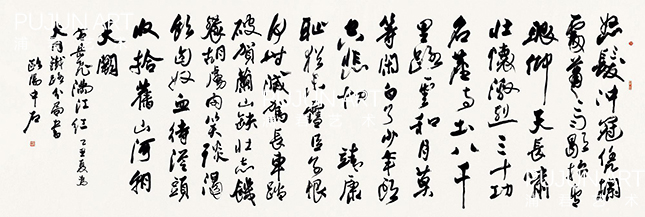 怒髮沖冠憑欄
處蕭蕭雨歇抬望
眼仰天長嘯
壯懷激烈三十功
名塵與土八千
里路雲和月莫
等閑白了少年頭
空悲切 靖康
恥猶未雪臣子恨
何時滅駕長車踏
破賀蘭山缺壯志饑
餐胡虜肉笑談渴
飲匈奴血待從頭
收拾舊山河朝
天闕
岳飛滿江紅 乙丑夏為
大同鐵路分局書
歐陽中石
PUJUN ART
PUJUN ART
PUJUN ART